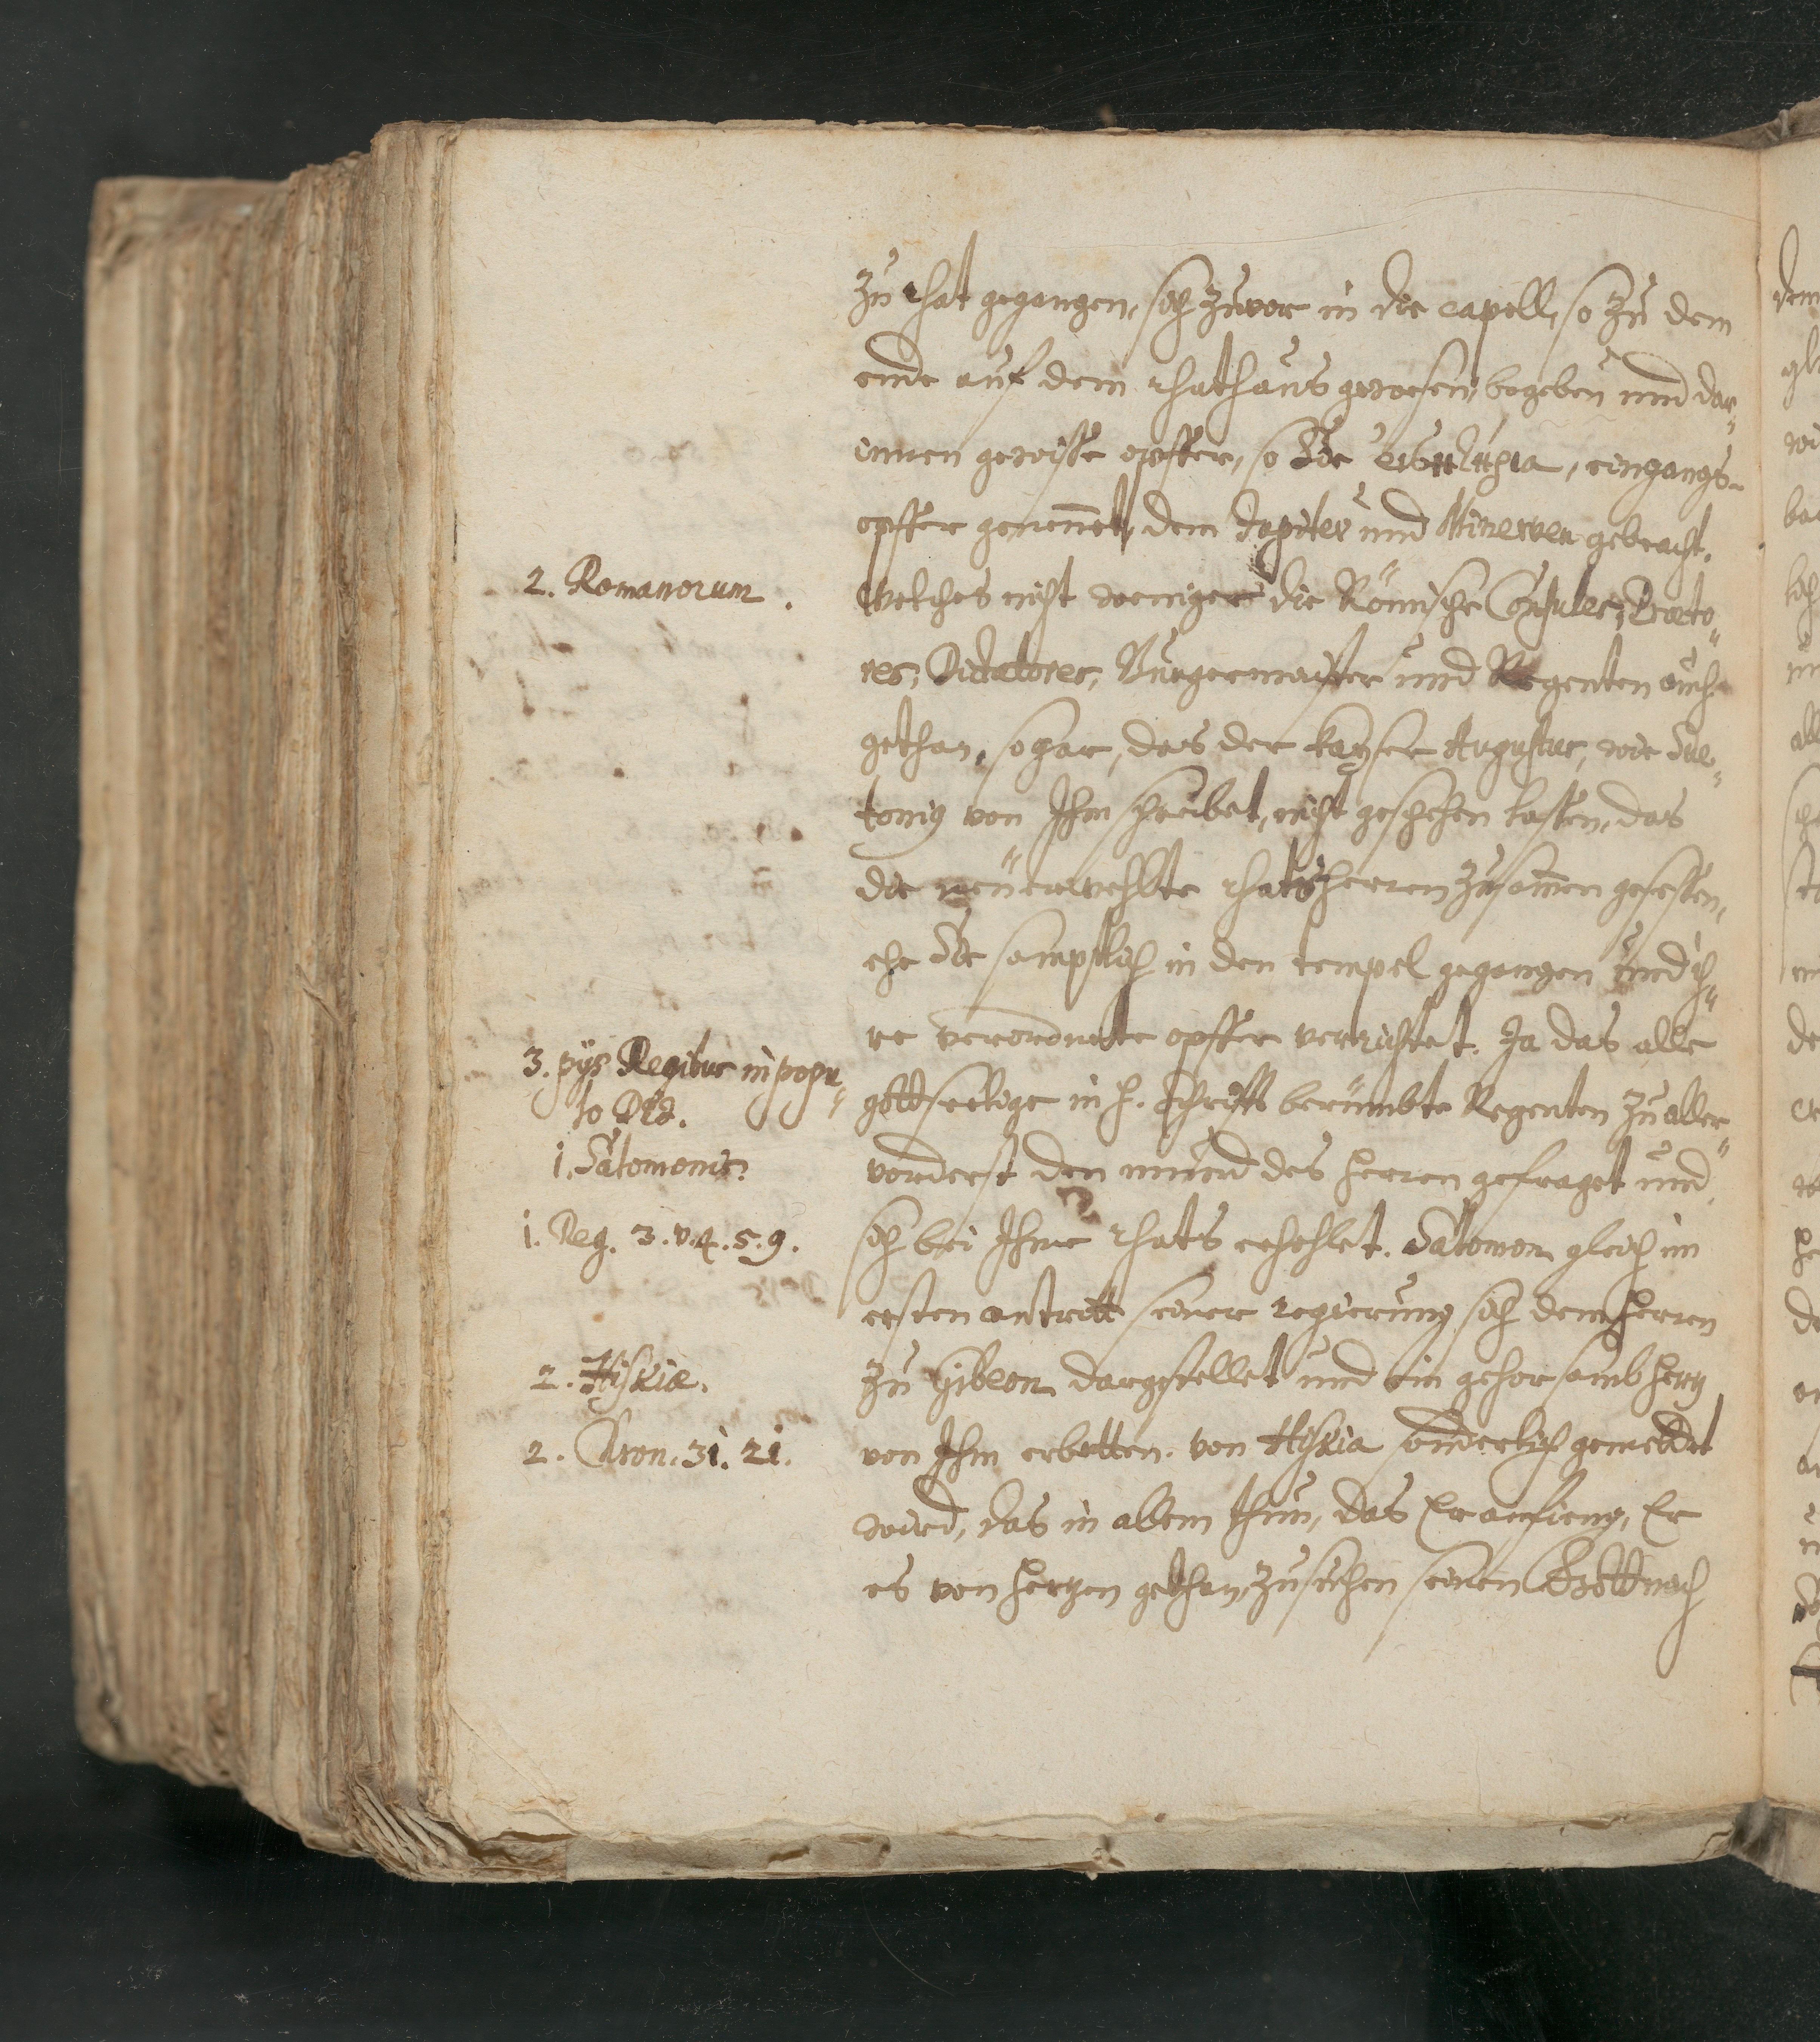 zu rhat gegangen, sich zuvor in die capell, so zu dem
ende auf dem rhathaus gewesen, begeben und dar„
innen gewisse opffer, so Sie εἰσιτήρια, eingangs-
opffer genennet, dem Jupiter und Minerven gebracht.
2. Romanorum.
Welches nicht weniger die Römische Consules, Præto„
res, Dictatores, Burgermaister und Regenten auch
gethan, sogar, das der kayser Augustus, wie Sue„
tonig von Ihm schreibet, nicht geschehen lassen, das
die neüerwehlte rhatsherren zusammen gesessen,
ehe Sie samptlich in den tempel gegangen und ih„
re verordnete opffer verrichtet. Ja das alle
3. pijs Regibus in popu„
lo Dei.
gottseelige in H. Schrifft berümbte Regenten zu aller„
1. Salomonis.
vorderst den mund des Herren gefraget und
1. Reg. 3. v. 4. 5. 9.
sich bei Ihme rhats erhohlet. Salomon gleich im
ersten antritt seiner regierung sich dem Herren
2. Hiskiæ.
zu Gibeon dargestellet und ein gehorsamb hertz
2. Chron. 31. 21.
von Ihm erbetten. von Hiskia sonderlich gemeldet
wird, das in allem thun, das Er anfieng, Er
es von hertzen gethan, zu suchen seinen Gott nach